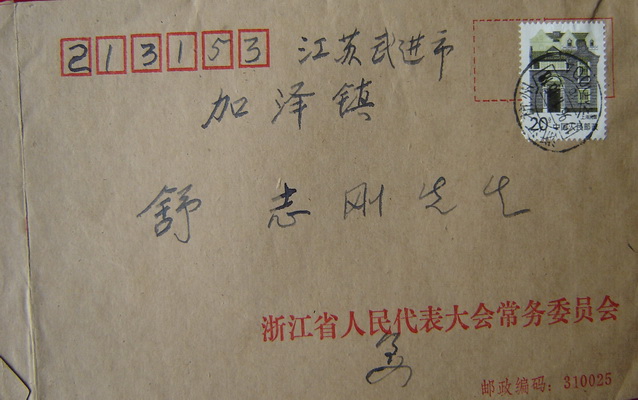 213153 江苏武进市
加泽镇
舒志刚先生
20分 中国人民邮政
浙江省人民代表大会常务委员会
姜
邮政编码：310025